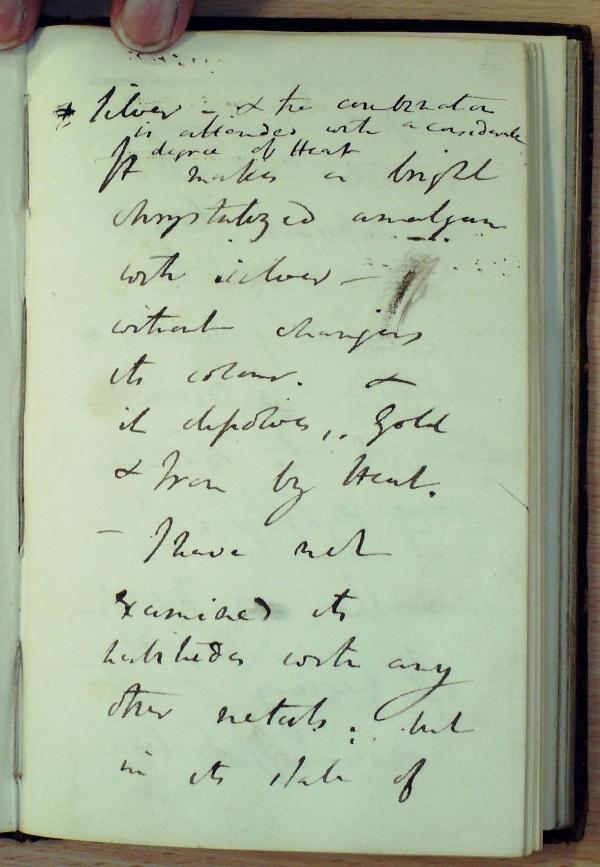 * Silver - & the combination
is attended with a considerable
degree of Heat
It makes a bright
chrystalized amalgam
with silver -
without changing
its colour. &
it dissolves Gold
& Iron by Heat.
- I have not
examined its
habitudes with any
other metals; but
in its state of